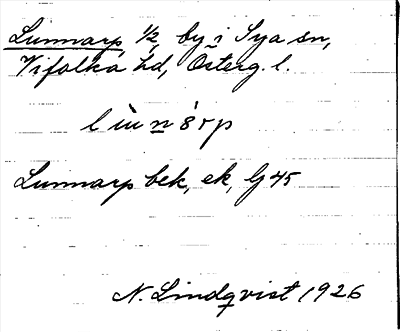 Lunnarp, 1/2, by i Sya sn,
Vifolka hd, Österg. l.
Lunnarp bek, ek, lj 45
N. Lindqvist 1926